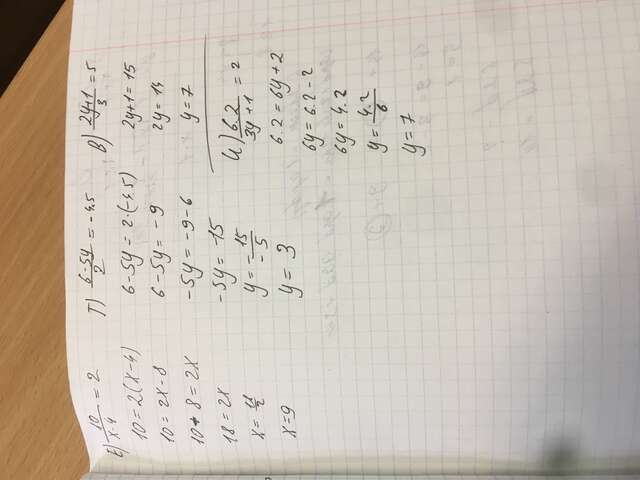 Е) 10/(x-4) = 2
10 = 2(x-4)
10 = 2x-8
10+8 = 2x
18 = 2x
x = 18/2
x=9
Г) (6-5y)/2 = -4.5
6-5y = 2·(-4.5)
6-5y = -9
-5y = -9-6
-5y = -15
y = -15/-5
y = 3
В) (2y+1)/3 = 5
2y+1 = 15
2y = 14
y = 7
И) 6.2/(3y+1) = 2
6.2 = 6y+2
6y = 6.2-2
6y = 4.2
y = 4.2/6
y = 7